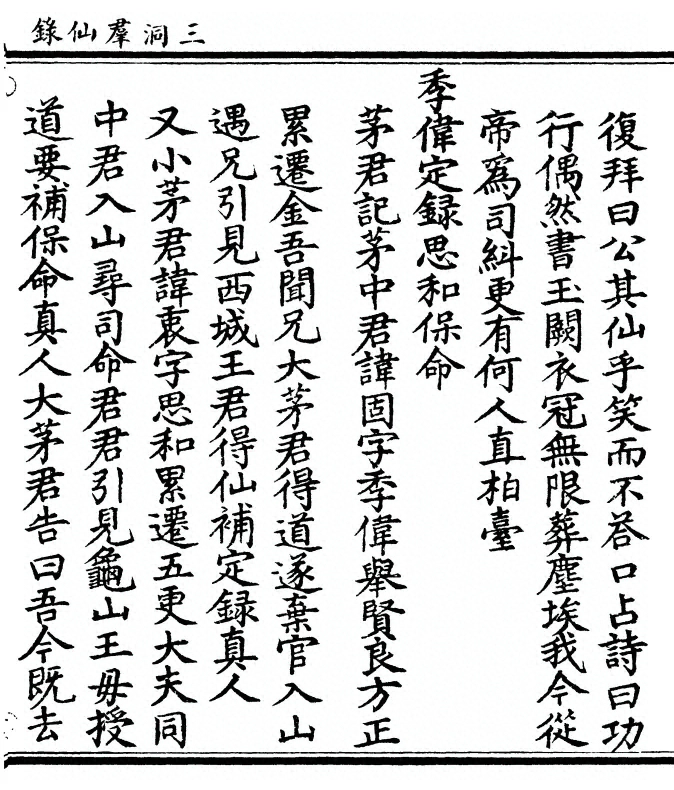 三洞羣仙錄
復拜曰公其仙乎笑而不荅口占詩曰功
行偶然書玉闕衣冠無限葬塵埃我今從
帝為司糾更有何人直柏臺
季偉定録思和保命
茅君記茅中君諱固字季偉舉賢良方正
累遷金吾聞兄大茅君得道遂棄官入山
遇兄引見西城王君得仙補定録真人
又小茅君諱衷字思和累遷五更大夫同
中君入山尋司命君君引見龜山王母授
道要補保命真人大茅君告曰吾今既去